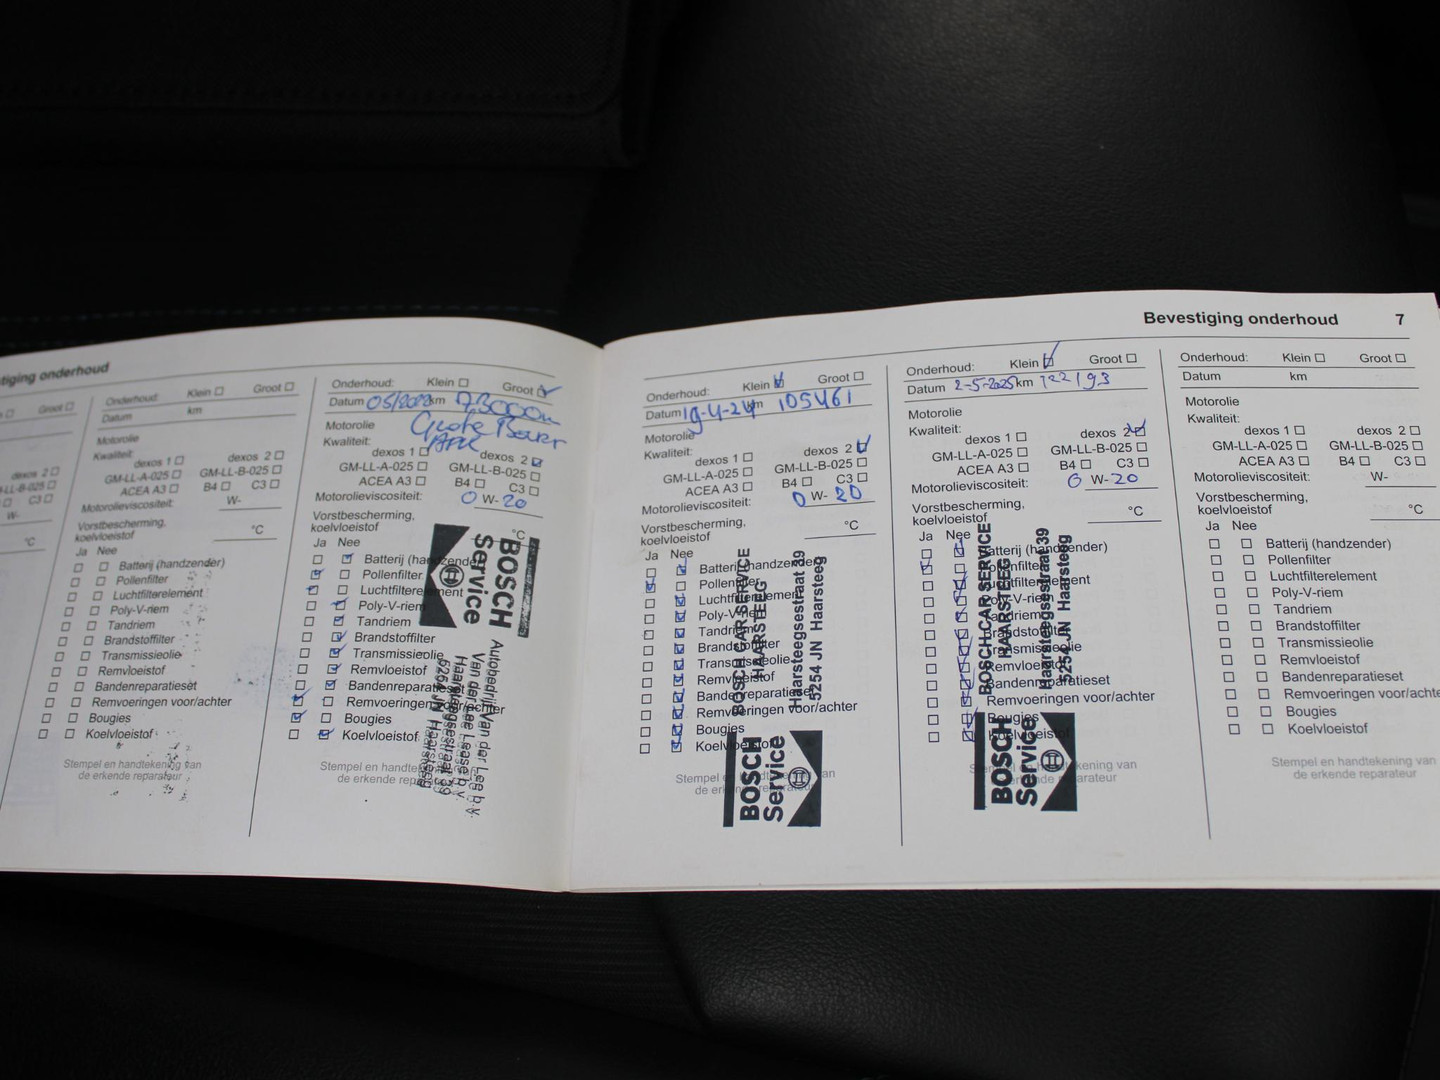 tiging onderhoud
Groot
dexos 2
LL-B-025
C3
W-
°C
Onderhoud: Klein Groot
Datum km
Motorolie
Kwaliteit:
dexos 1 dexos 2
GM-LL-A-025 GM-LL-B-025
ACEA A3 B4 C3
Motorolieviscositeit: W-
Vorstbescherming,
koelvloeistof °C
Ja Nee
Batterij (handzender)
Pollenfilter
Luchtfilterelement
Poly-V-riem
Tandriem
Brandstoffilter
Transmissieolie
Remvloeistof
Bandenreparatieset
Remvoeringen voor/achter
Bougies
Koelvloeistof
Stempel en handtekening van
de erkende reparateur
Onderhoud: Klein Groot
Datum 05/2022 km 73000
Motorolie Grote Beurt
Kwaliteit: APK
dexos 1 dexos 2
GM-LL-A-025 GM-LL-B-025
ACEA A3 B4 C3
Motorolieviscositeit: 0 W- 20
Vorstbescherming,
koelvloeistof °C
Ja Nee
Batterij (handzender)
Pollenfilter
Luchtfilterelement
Poly-V-riem
Tandriem
Brandstoffilter
Transmissieolie
Remvloeistof
Bandenreparatieset
Remvoeringen voor/achter
Bougies
Koelvloeistof
Stempel en handtekening
de erkende reparateur
BOSCH
Service
Autobedrijf Van der Lee b.v.
Van der Lee Lease b.v.
Haarsteegsestraat 39
5254 JN Haarsteeg
Bevestiging onderhoud 7
Onderhoud: Klein Groot
Datum 19-4-24 km 105461
Motorolie
Kwaliteit:
dexos 1 dexos 2
GM-LL-A-025 GM-LL-B-025
ACEA A3 B4 C3
Motorolieviscositeit: 0 W- 20
Vorstbescherming,
koelvloeistof °C
Ja Nee
Batterij (handzender)
Pollenfilter
Luchtfilterelement
Poly-V-riem
Tandriem
Brandstoffilter
Transmissieolie
Remvloeistof
Bandenreparatieset
Remvoeringen voor/achter
Bougies
Koelvloeistof
Stempel en handtekening van
de erkende reparateur
BOSCH CAR SERVICE
HAARSTEEG
Haarsteegsestraat 39
5254 JN Haarsteeg
BOSCH
Service
Onderhoud: Klein Groot
Datum 2-5-2025 km 122193
Motorolie
Kwaliteit:
dexos 1 dexos 2
GM-LL-A-025 GM-LL-B-025
ACEA A3 B4 C3
Motorolieviscositeit: 0 W- 20
Vorstbescherming,
koelvloeistof °C
Ja Nee
Batterij (handzender)
Pollenfilter
Luchtfilterelement
Poly-V-riem
Tandriem
Brandstoffilter
Transmissieolie
Remvloeistof
Bandenreparatieset
Remvoeringen voor/achter
Bougies
Koelvloeistof
Stempel en handtekening van
de erkende reparateur
BOSCH CAR SERVICE
HAARSTEEG
Haarsteegsestraat 39
5254 JN Haarsteeg
BOSCH
Service
Onderhoud: Klein Groot
Datum km
Motorolie
Kwaliteit:
dexos 1 dexos 2
GM-LL-A-025 GM-LL-B-025
ACEA A3 B4 C3
Motorolieviscositeit: W-
Vorstbescherming,
koelvloeistof °C
Ja Nee
Batterij (handzender)
Pollenfilter
Luchtfilterelement
Poly-V-riem
Tandriem
Brandstoffilter
Transmissieolie
Remvloeistof
Bandenreparatieset
Remvoeringen voor/achte
Bougies
Koelvloeistof
Stempel en handtekening van
de erkende reparateur